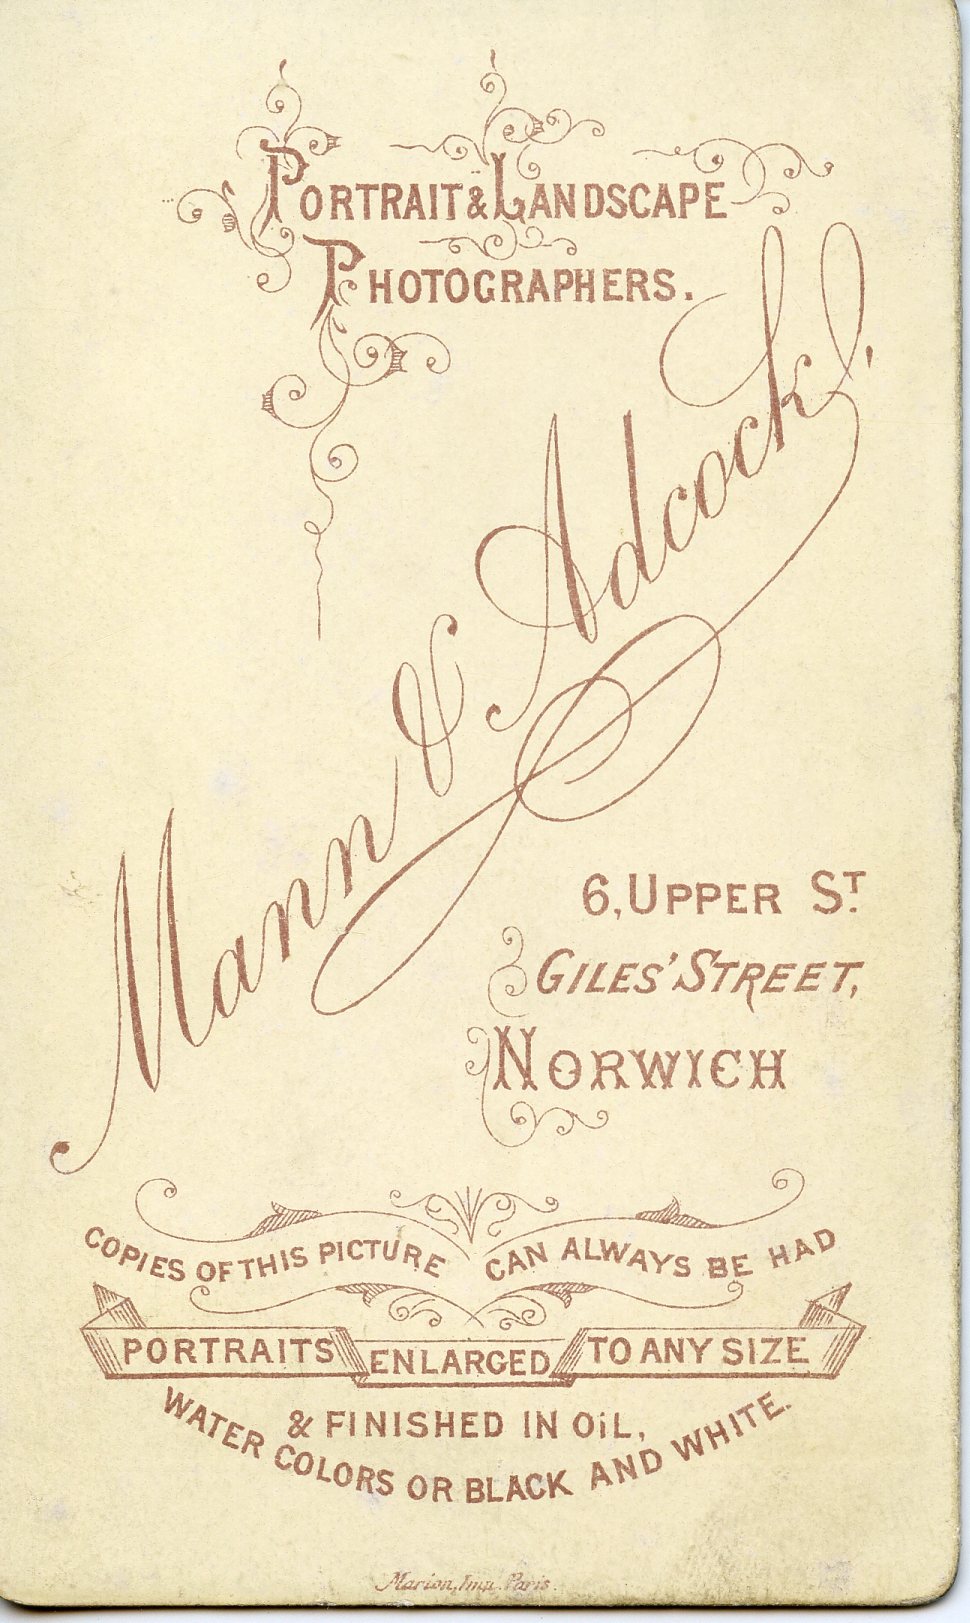 PORTRAIT & LANDSCAPE
PHOTOGRAPHERS.
Mann & Adcock,
6, UPPER ST.
GILES' STREET,
NORWICH
COPIES OF THIS PICTURE CAN ALWAYS BE HAD
PORTRAITS ENLARGED TO ANY SIZE
& FINISHED IN OiL,
WATER COLORS OR BLACK AND WHITE.
Marion, Imp. Paris.